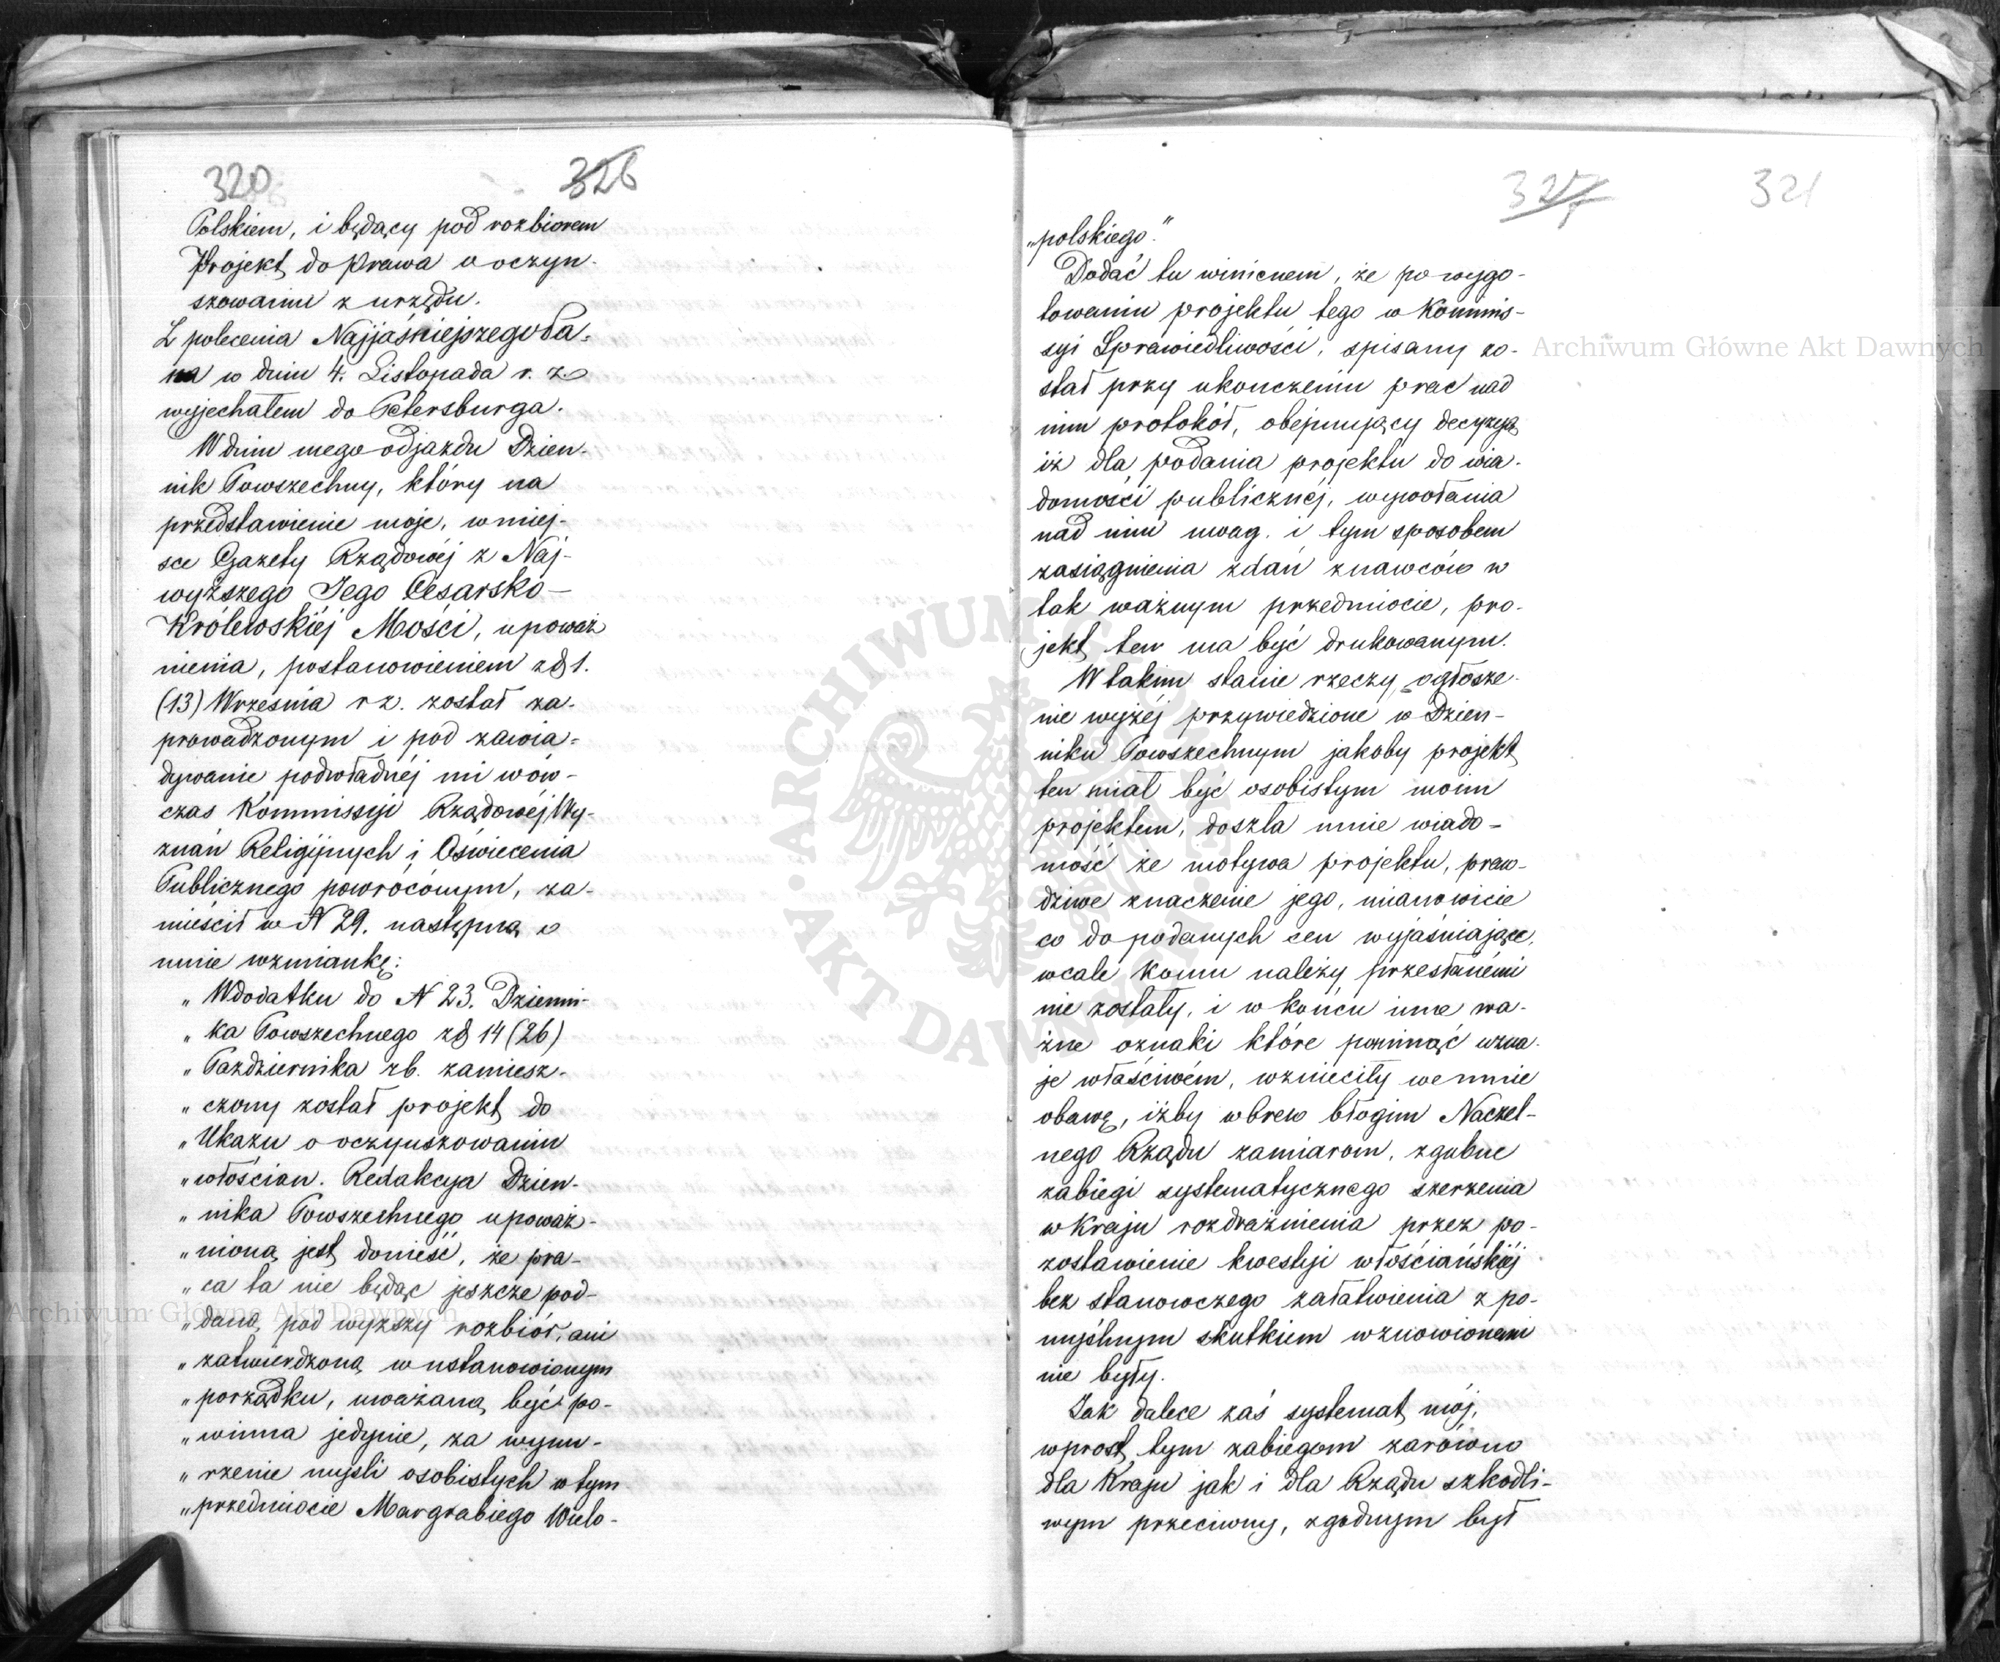 320 326
Polskiem, i będący pod rozbiorem
Projekt do prawa o oczyn-
szowaniu z urzędu.
Z polecenia Najjaśniejszego Pa-
na w dniu 4. Listopada r. z.
wyjechałem do Petersburga.
W dniu mego odjazdu Dzien-
nik Powszechny, który na
przedstawienie moje, w miej-
sce Gazety Rządowéj z Naj-
wyższego Jego Cesarsko-
Królewskiéj Mości, upoważ
nienia, postanowieniem z d. 1.
(13) Września r z. został za-
prowadzonym i pod zawia-
dywanie podwładnéj mi wów-
czas Kommissyi Rządowéj Wy-
znań Religijnych i Oświecenia
Publicznego powróconym, za-
mieścił w N 29. następną o
mnie wzmiankę:
„ W dodatku do N 23. Dzienni-
„ ka Powszechnego z d 14 (26)
„ Października r b. zamiesz-
„ czony został projekt do
„ Ukazu o oczynszowaniu
„ włościan. Redakcya Dzien-
„ nika Powszechnego upoważ-
„ nioną jest donieść, że pra-
„ ca ta nie będąc jeszcze pod-
„ daną pod wyższy rozbiór, ani
„ zatwierdzoną w ustanowionym
„ porządku, uważaną być po-
„ winna jedynie, za wynu-
„ rzenie myśli osobistych w tym
„ przedmiocie Margrabiego Wielo-
327 321
„polskiego."
Dodać tu winienem, że po wygo-
towaniu projektu tego w Kommis-
syi Sprawiedliwości, spisany zo-
stał przy ukończeniu prac nad
nim protokół, obejmujący decyzyą
iż dla podania projektu do wia-
domości publicznéj, wywołania
nad nim uwag, i tym sposobem
zasiągnienia zdań znawców w
tak ważnym przedmiocie, pro-
jekt ten ma być drukowanym.
W takim stanie rzeczy ogłosze-
nie wyżéj przywiedzione w Dzien-
niku Powszechnym jakoby projekt
ten miał być osobistym moim
projektem, doszła mnie wiado-
mość że motywa projektu, praw-
dziwe znaczenie jego, mianowicie
co do podanych cen wyjaśniające,
wcale komu należy przesłanémi
nie zostały, i w końcu inne wa-
żne oznaki które pominąć uzna-
je właściwém, wznieciły we mnie
obawę, iżby wbrew błogim Naczel-
nego Rządu zamiarom, zgubne
zabiegi systematycznego szerzenia
w Kraju rozdrażnienia przez po-
zostawienie kwestyi włościańskiéj
bez stanowczego załatwienia z po-
myślnym skutkiem wznowionemi
nie były.
Jak dalece zaś systemat mój,
wprost tym zabiegom zarówno
dla Kraju jak i dla Rządu szkodli-
wym przeciwny, zgodnym był
Archiwum Główne Akt Dawnych
Archiwum Główne Akt Dawnych
ARCHIWUM GŁÓWNE AKT DAWNYCH